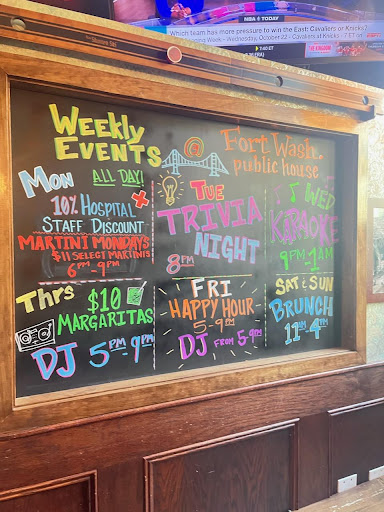 NBA TODAY
Which team has more pressure to win the East: Cavaliers or Knicks?
Week - Wednesday, October 22 - Cavaliers at Knicks - 7 ET on
7:40 ET
Weekly
Events
Fort Wash.
public house
Mon
ALL DAY!
10% Hospital
Staff Discount
Martini Mondays
$11 Select Martinis
6PM-9PM
Tue
Trivia
Night
8PM
WED
Karaoke
9PM-1AM
Thrs
$10
Margaritas
DJ 5PM-9PM
Fri
Happy Hour
5-9PM
DJ from 5-9PM
Sat & Sun
Brunch
11AM-4PM